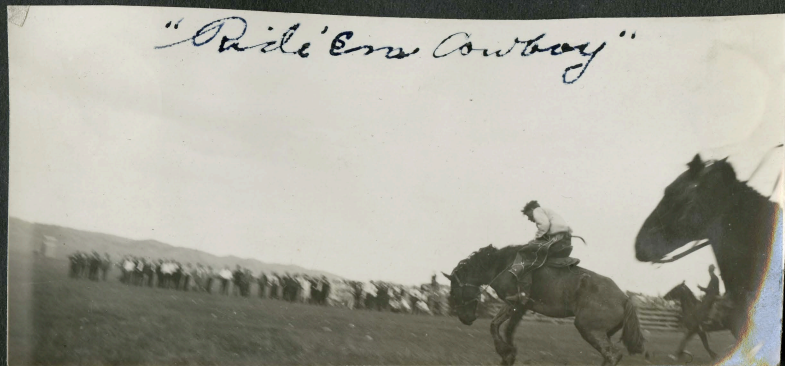 "Ride 'Em Cowboy"